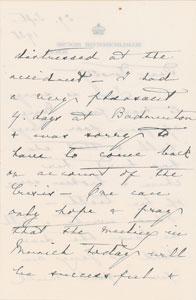 distressed at the
accident – I had
a very pleasant
4 days at Badminton
& was sorry to
have to come back
on account of the
Crisis – One can
only hope & pray
that the meeting in
Munich today will
be successful &